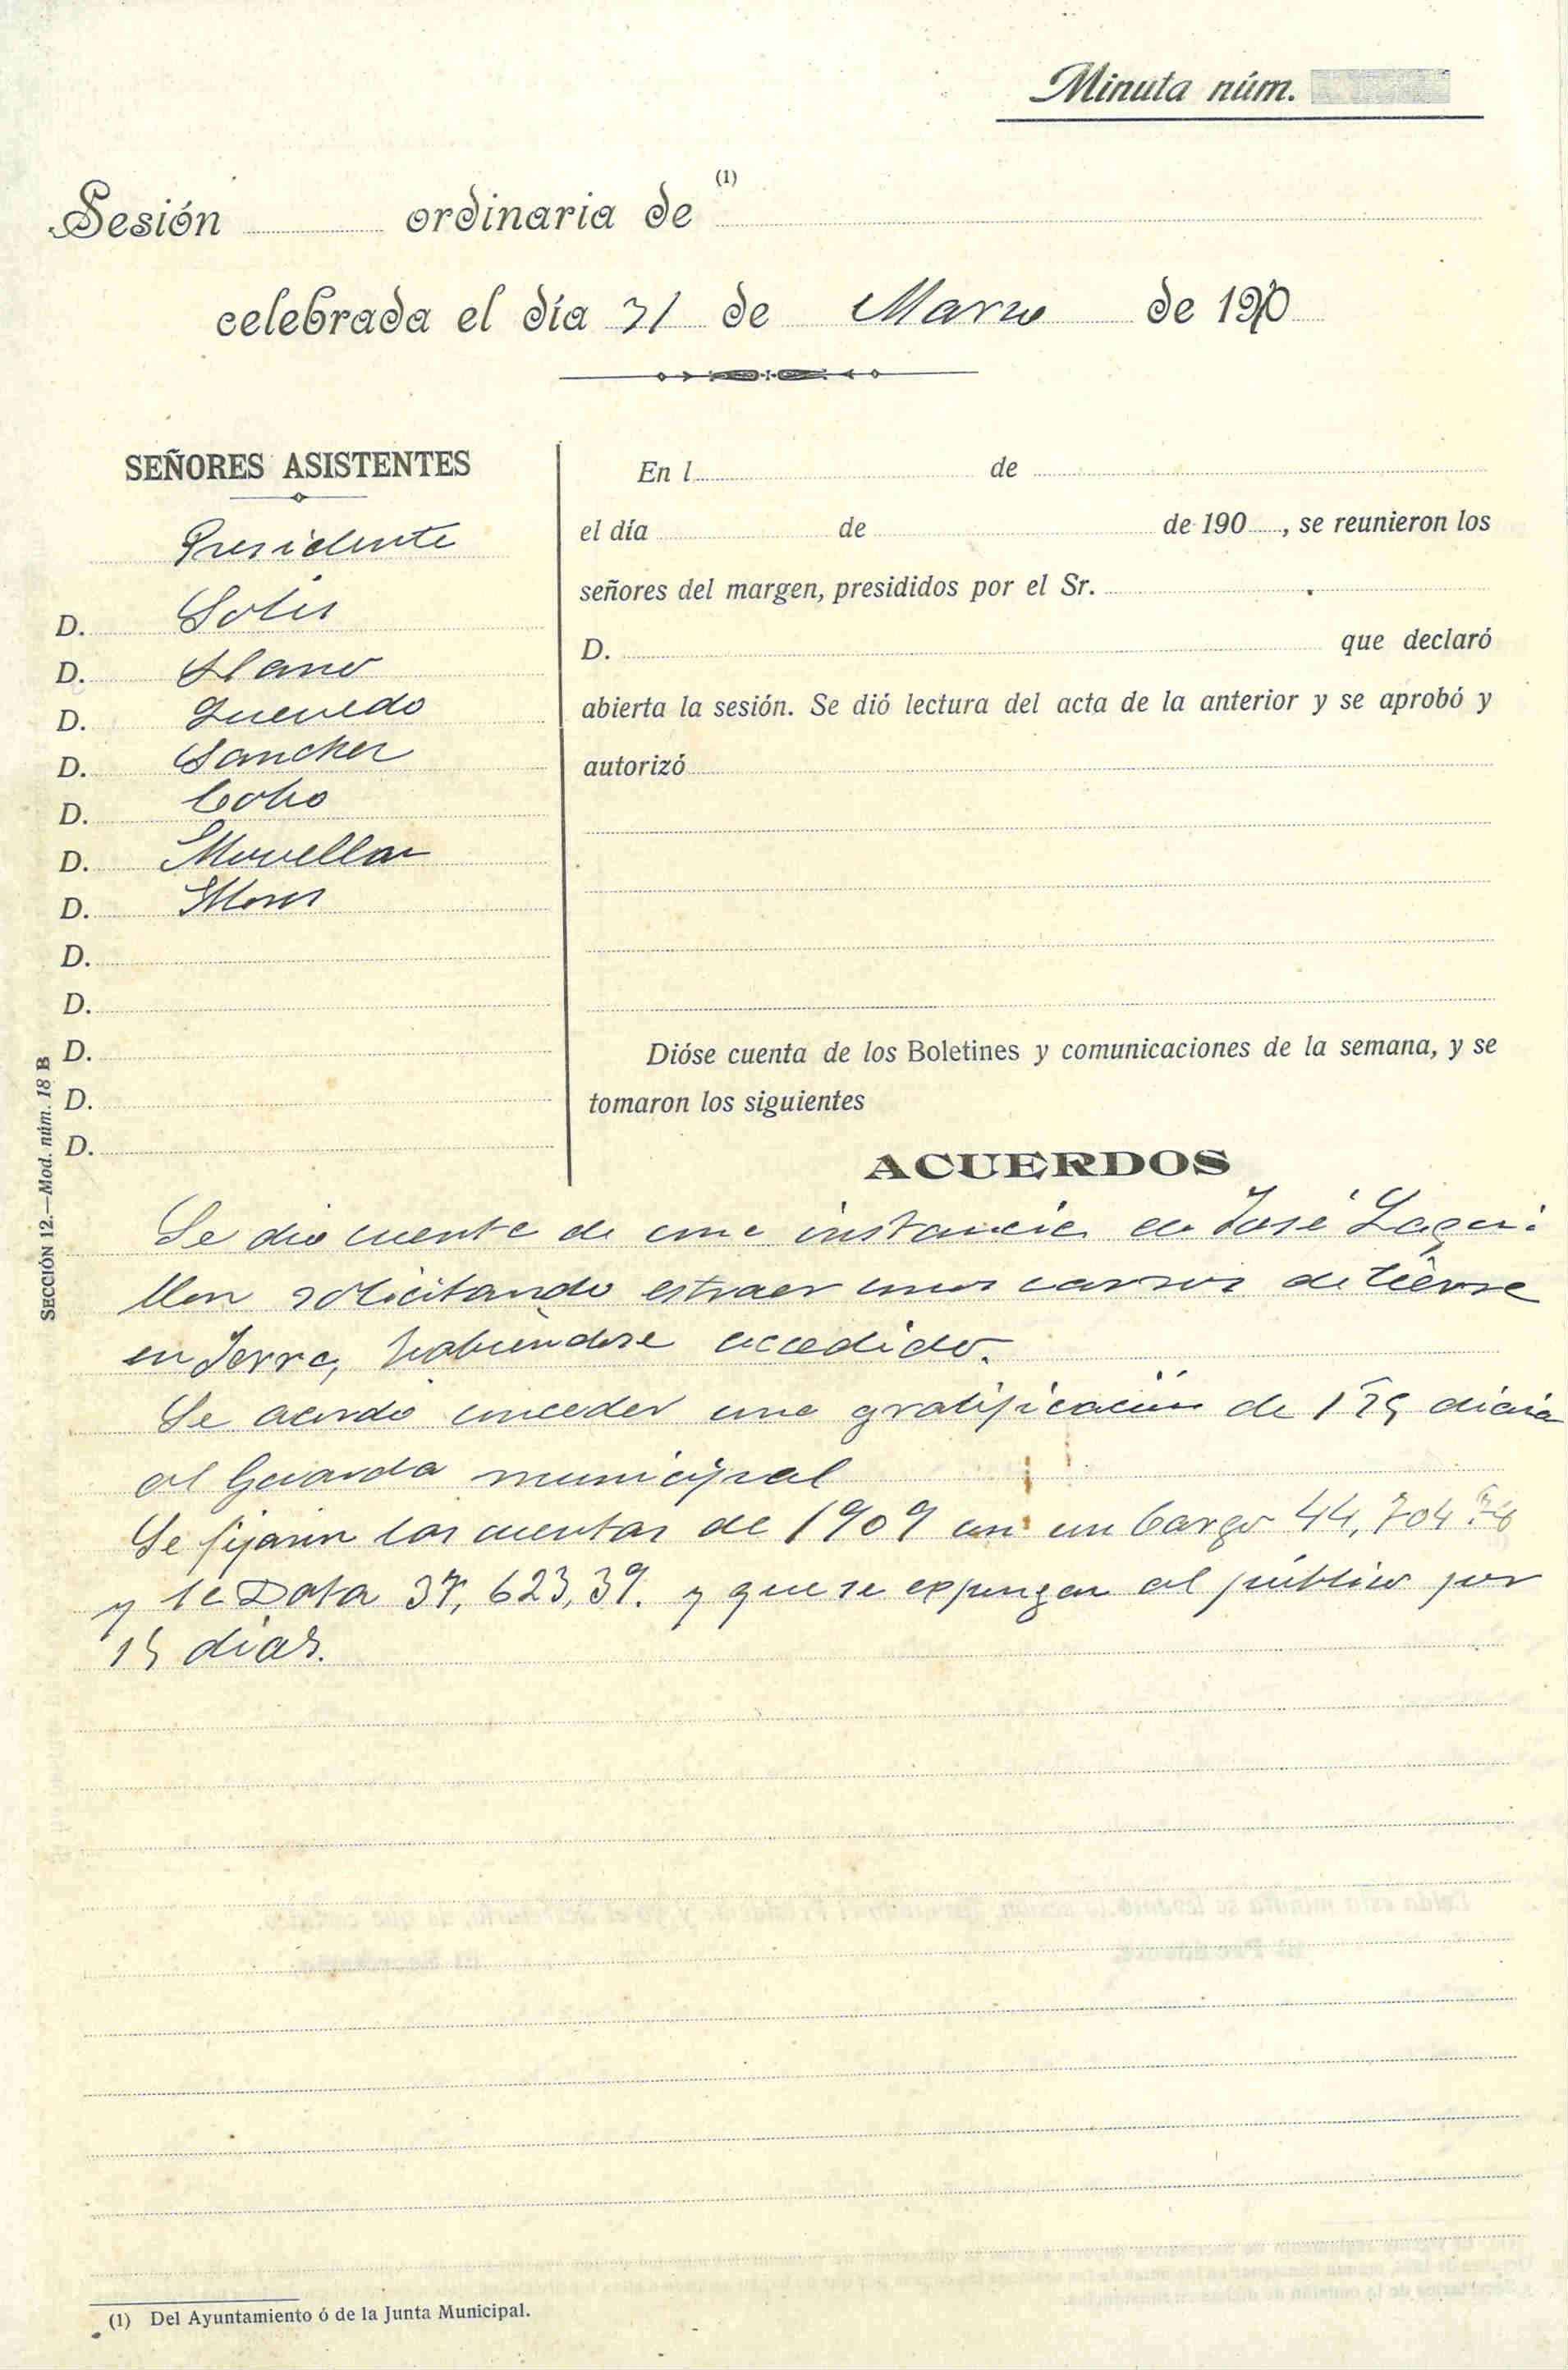 Minuta núm.
Sesión ordinaria de (1)
celebrada el día 31 de Marzo de 1910
SEÑORES ASISTENTES
Presidente
D. Solis
D. Llano
D. Quevedo
D. Sanchez
D. Cobo
D. Movellan
D.
D.
D.
D.
D.
D.
En l de
el día de de 190 , se reunieron los
señores del margen, presididos por el Sr.
D. que declaró
abierta la sesión. Se dió lectura del acta de la anterior y se aprobó y
autorizó
Dióse cuenta de los Boletines y comunicaciones de la semana, y se
tomaron los siguientes
ACUERDOS
Se dio cuenta de una instancia de José Lagui-
llon solicitando estraer unos carros de tierra
en habiendose accedido.
Se acordo conceder una gratificación de diaria
al Guarda municipal
Se fijaron las cuentas de 1909 con un Cargo 44,704
y la Data 37,623,39. y que se expongan al público por
15 dias.
SECCIÓN 12.—Mod. núm. 18 B
(1) Del Ayuntamiento ó de la Junta Municipal.